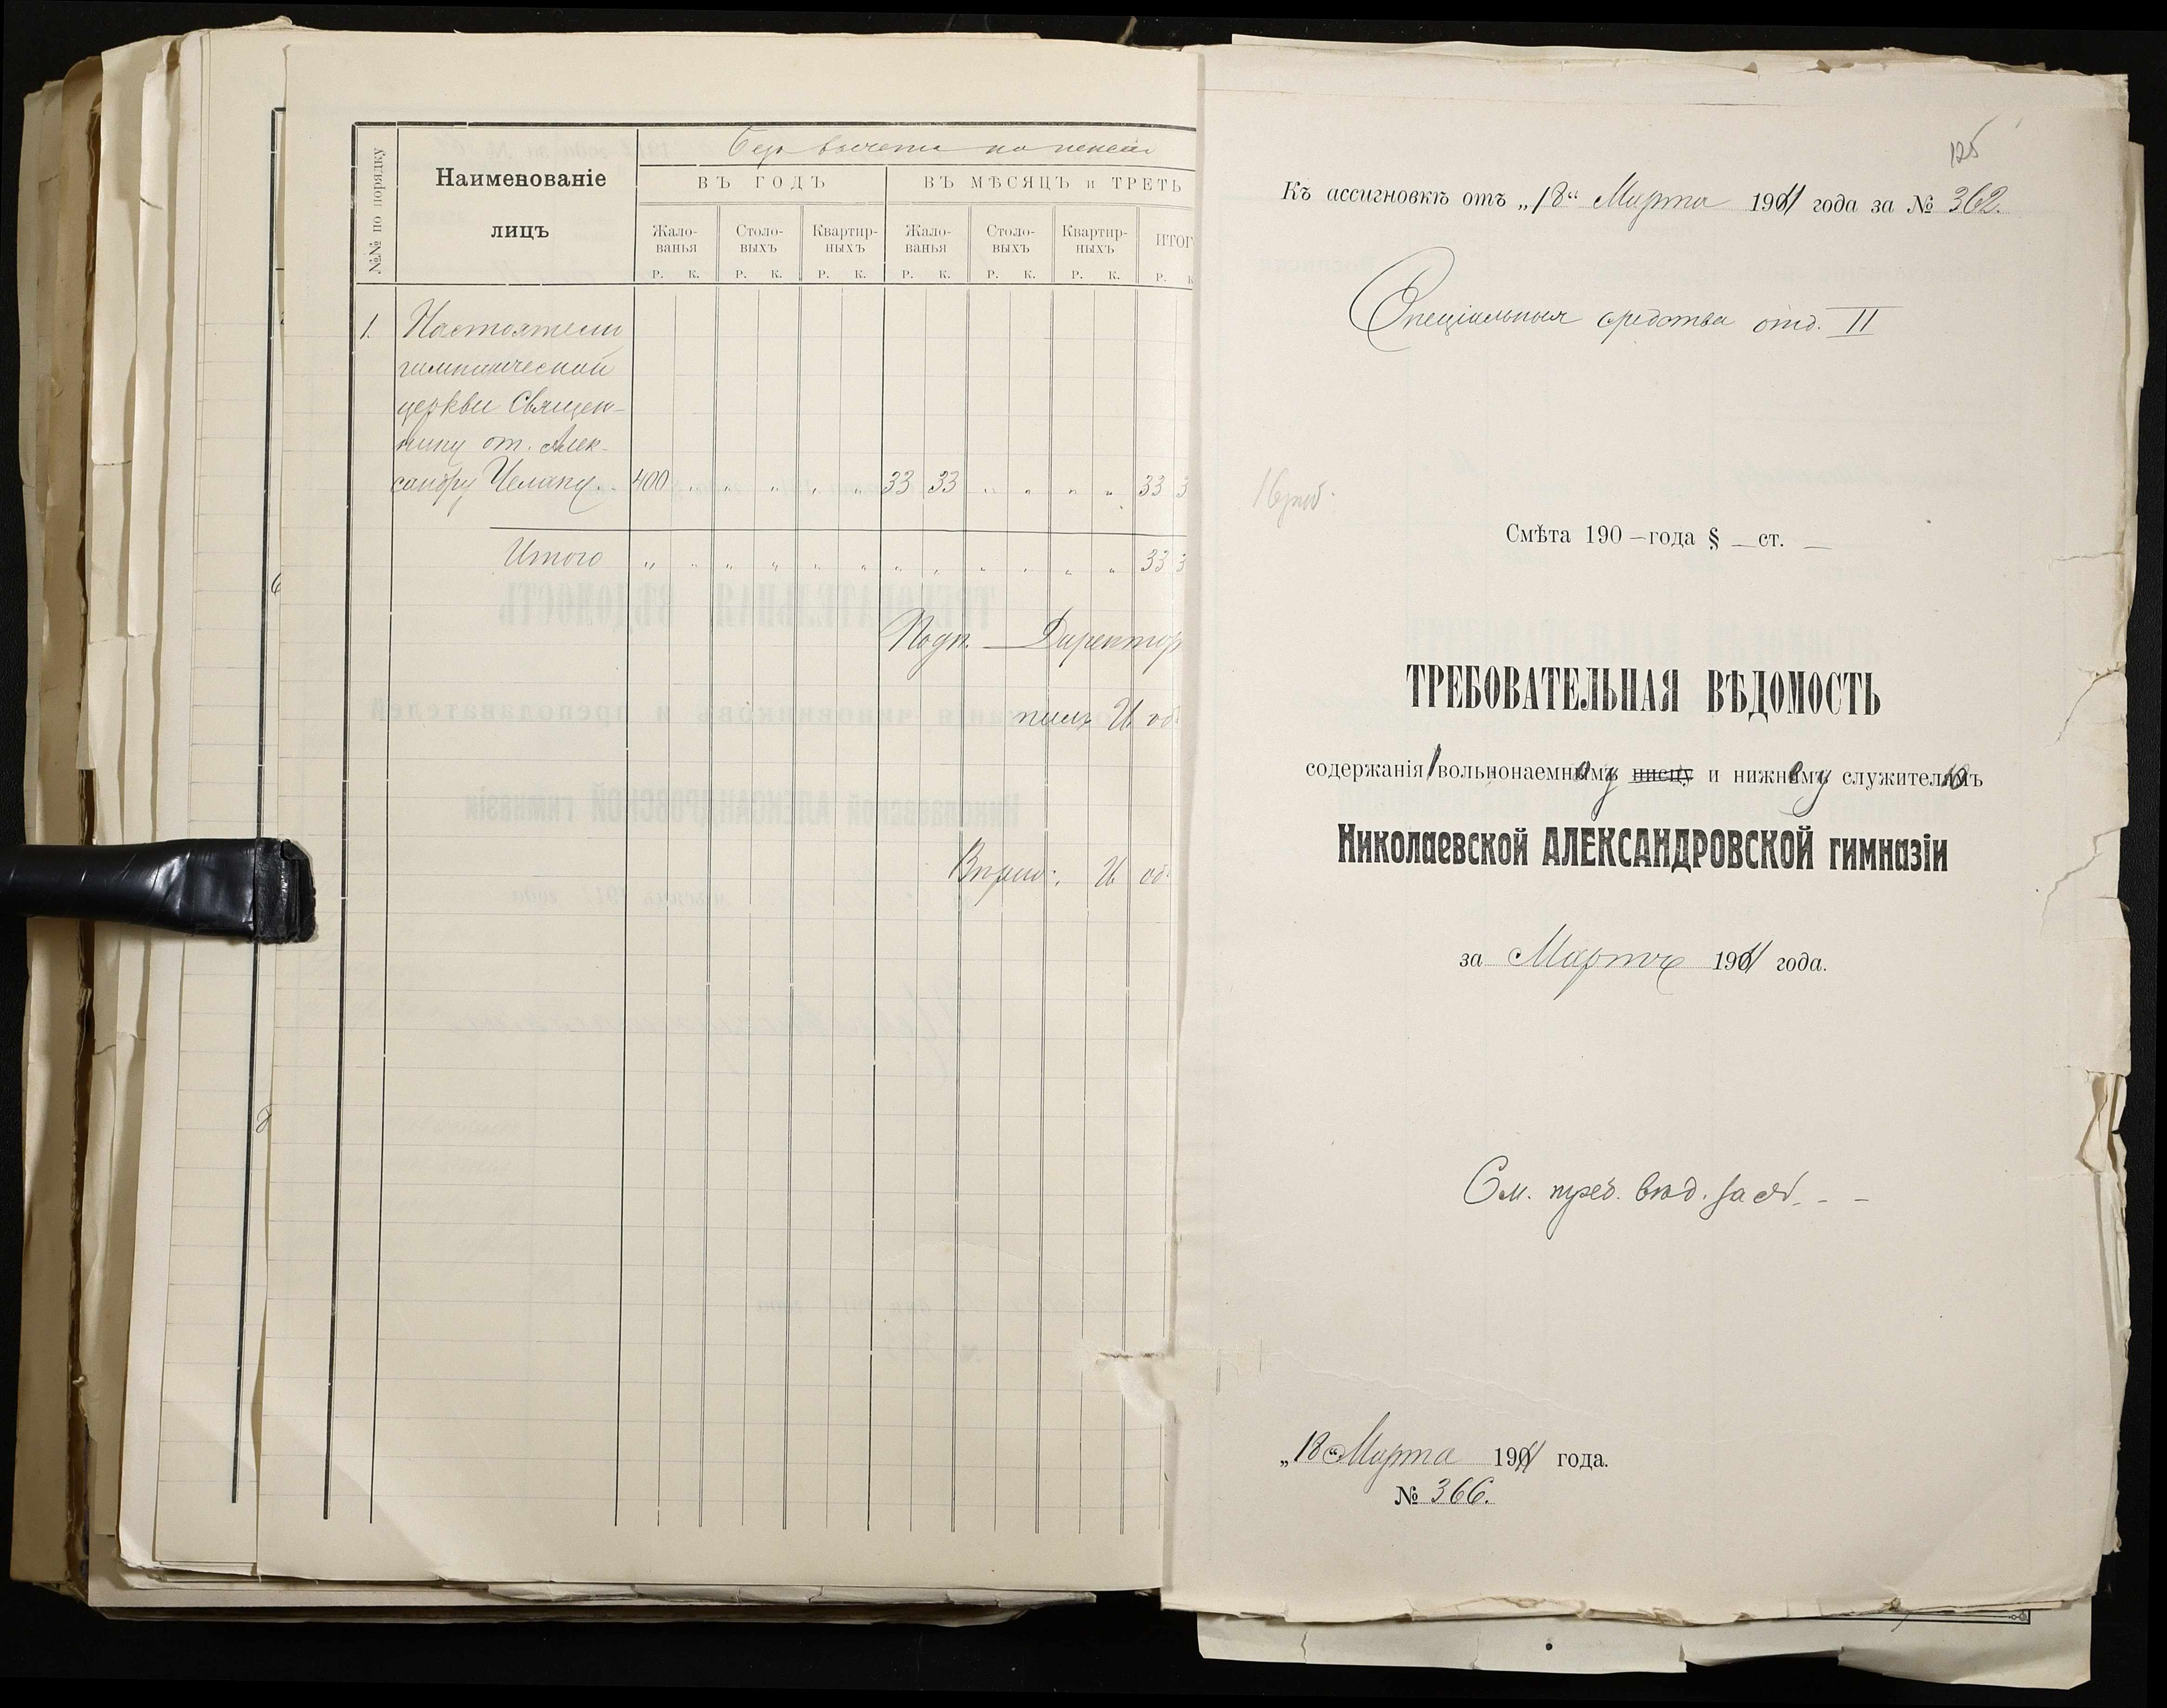 Безъ вычета на пенсіи
№№ по порядку
Наименованіе
лицъ
ВЪ ГОДЪ
ВЪ МѢСЯЦЪ и ТРЕТЬ
Жало-
ванья
Столо-
выхъ
Квартир-
ныхъ
Жало-
ванья
Столо-
выхъ
Квартир-
ныхъ
ИТОГ
Р. К. Р. К. Р. К. Р. К. Р. К. Р. К. Р. К
1. Настоятелю
гимназической
церкви Священ-
нику от. Алек-
сандру Челану. 400 „ „ „ „ „ 33 33 „ „ „ „ 33 3
Итого „ „ „ „ „ „ „ „ „ „ „ „ 33 3
Подп. Директор
И об
Вѣрно: И об
125
Къ ассигновкѣ отъ „18“ Марта 1911 года за № 362.
Спеціальныя средства отд. II
Смѣта 190 – года § – ст. –
ТРЕБОВАТЕЛЬНАЯ ВѢДОМОСТЬ
содержанія вольнонаемному писцу и нижнему служителю
Николаевской АЛЕКСАНДРОВСКОЙ гимназіи
за Мартъ 1911 года.
См. треб. вѣд. за
„18“ Марта 1911 года.
№ 366.